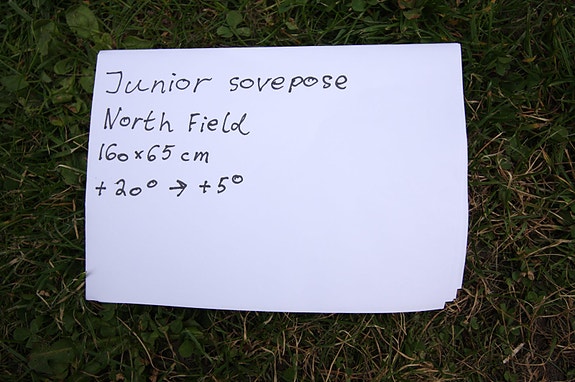 Junior sovepose
North Field
160x65 cm
+20° → +5°